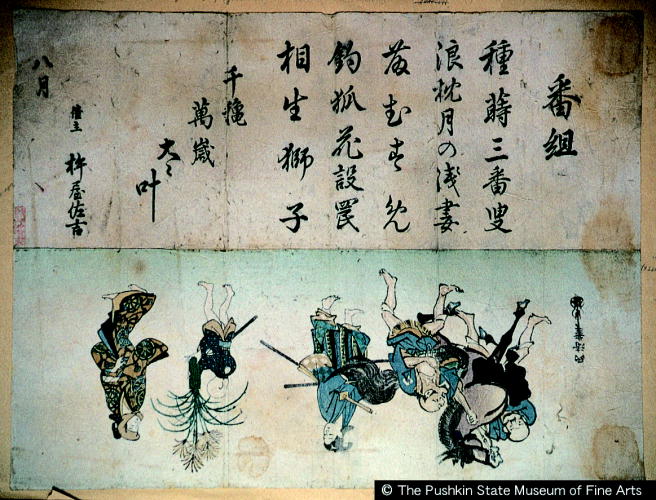 番組
種蒔三番叟
浪枕月の浅妻
藤むすめ
釣狐花設罠
相生獅子
千穐
萬歳
大々叶
八月
催主 杵屋佐吉
© The Pushkin State Museum of Fine Arts